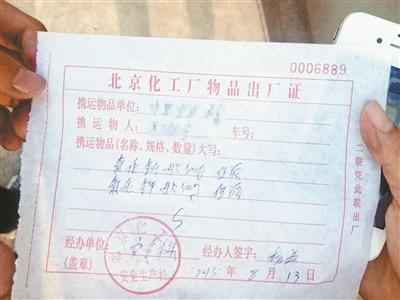 0006889
北京化工厂物品出厂证
携运物品单位:
携运物人: 车号:
携运物品(名称、规格、数量)大写:
氰化钠 500g
氰化钾 500g
经办单位:
(盖章)
安全生产科
经办人签字:
2015年8月13日
二联凭此联出厂